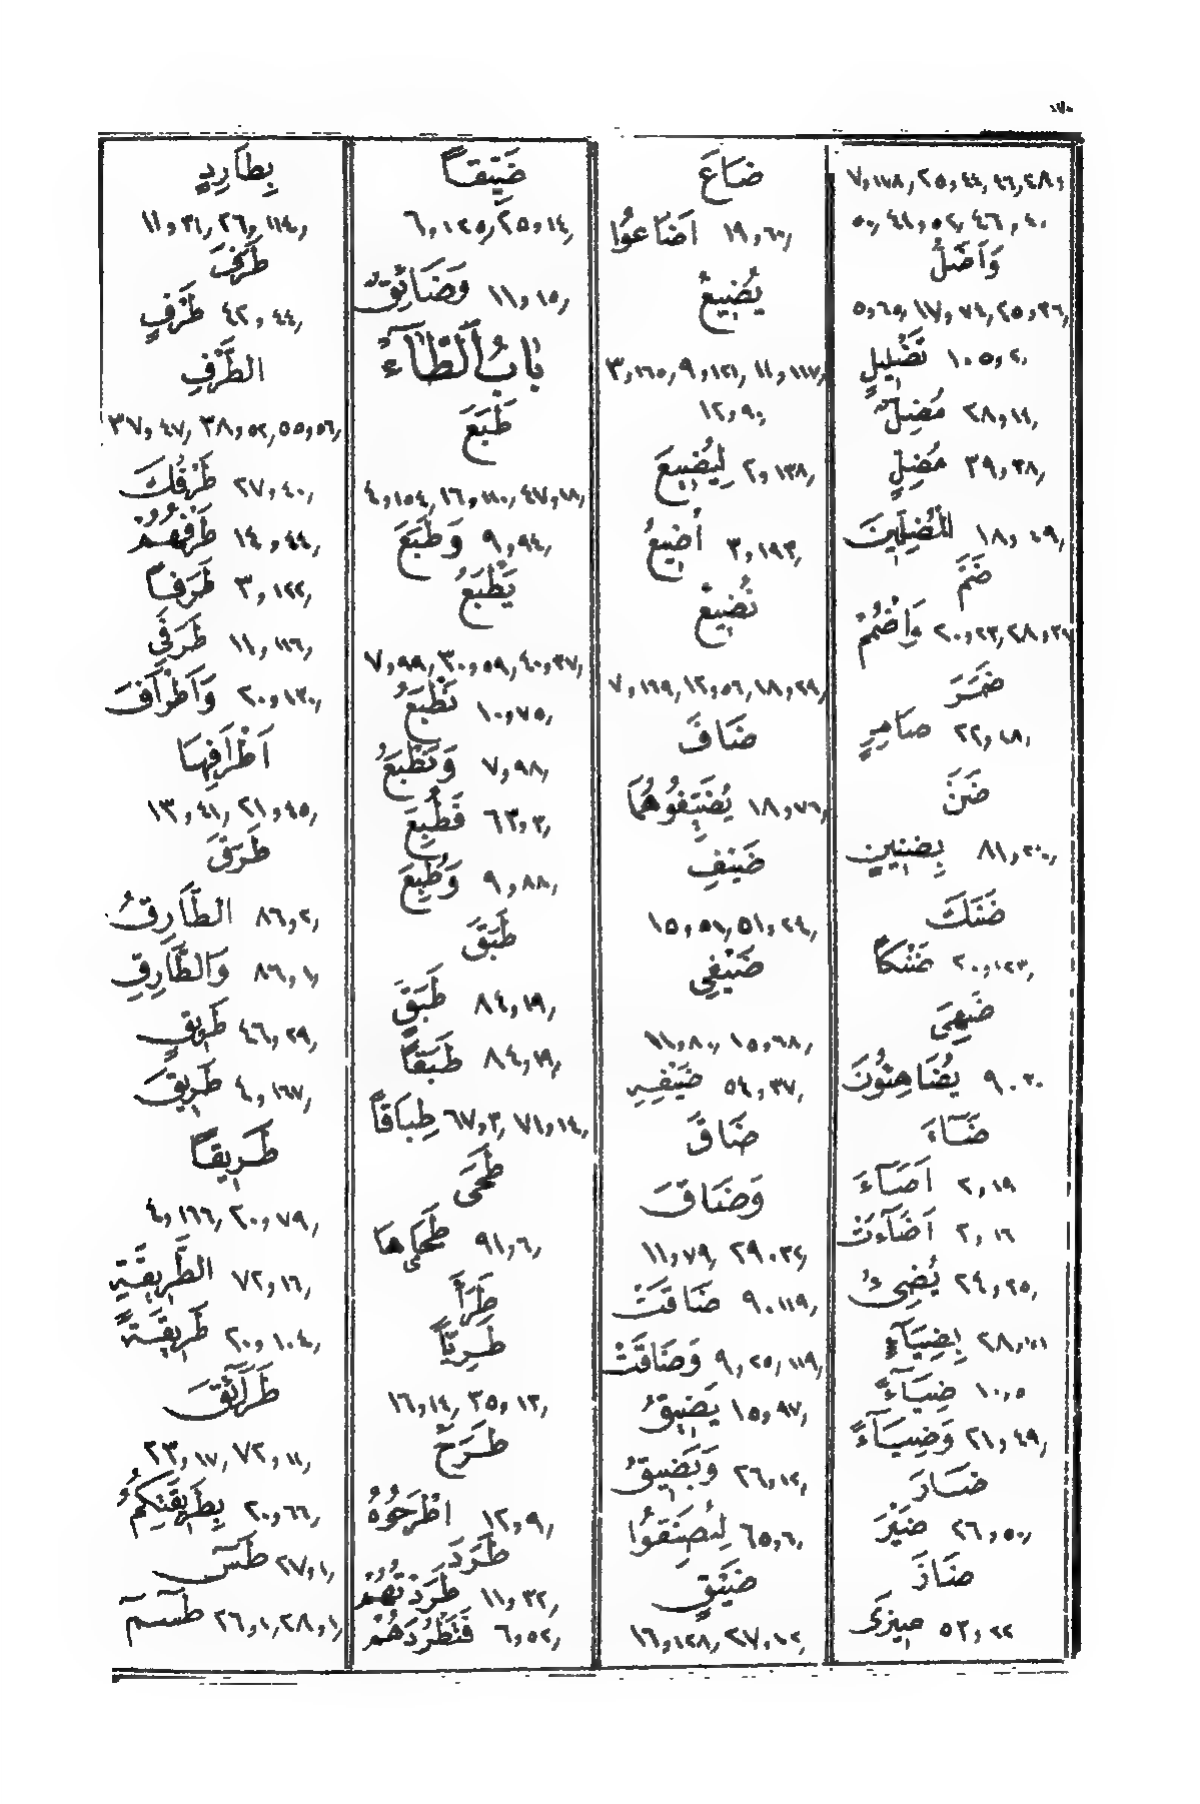 ٧٠
٧,١٧٨, ٢٥,٤٤, ٤٦,٤٨,
٥٠, ٤١,٥٢, ٤٦,٤٠
وَاَضَلُّ
٥,٦٠, ١٧,٧٤, ٢٥,٣٦,
تَضْلِيلٍ ١٠٥,٢,
مُضِلٌّ ٢٨,١٤,
مُضِلٍّ ٣٩,٣٨,
الْمُضِلِّينَ ١٨,٤٩,
ضَمَّ
وَاضْمُمْ ٢٠,٢٣, ٢٨,٣٢
ضَمَرَ
ضَامِرٍ ٢٢,١٨,
ضَنَّ
بِضَنِينٍ ٨١,٢٠,
ضَنَكَ
ضَنْكاً ٢٠,١٢٣,
ضَهِيَ
يُضَاهِئُونَ ٩.٣٠
ضَآءَ
اَضَآءَ ٢,١٩
اَضَآءَتْ ٢,١٦
يُضِىءُ ٢٤,٢٥,
بِضِيَآءٍ ٢٨,١٠١
ضِيَآءً ١٠,٥
وَضِيَآءً ٢١,٤٩,
ضَارَ
ضَيْرَ ٢٦,٥٠,
ضَازَ
ضِيزَى ٥٣,٢٢
ضَاعَ
اَضَاعُوا ١٩,٦٠,
يُضِيعُ
٣,١٦٥, ٩,١٢١, ١١,١١٧,
١٢,٩٠,
لِيُضِيعَ ٢,١٣٨,
أُضِيعُ ٣,١٩٣,
نُضِيعُ
٧,١٦٩, ١٢,٥٦, ١٨,٢٩,
ضَافَ
يُضَيِّفُوهُمَا ١٨,٧٦,
ضَيْفِ
١٥,٥١, ٥١,٢٤,
ضَيْفِي
١١,٨٠, ١٥,٦٨,
ضَيْفِهِ ٥٤,٣٧,
ضَاقَ
وَضَاقَ
١١,٧٩, ٢٩.٣٤,
ضَاقَتْ ٩.١١٩,
وَضَاقَتْ ٩,٢٥, ١١٩,
يَضِيقُ ١٥,٩٧,
وَيَضِيقُ ٢٦,١٢,
لِتُضَيِّقُوا ٦٥,٦,
ضَيْقٍ
١٦,١٢٨, ٢٧,٧٠,
ضَيِّقاً
٦,١٢٥, ٢٥,١٤,
وَضَآئِقٌ ١١,١٥,
بَابُ الطَّآءِ
طَبَعَ
٤,١٥٤, ١٦,١١٠, ٤٧,١٨,
وَطَبَعَ ٩,٩٤,
يَطْبَعُ
٧,٩٩, ٣٠,٥٩, ٤٠,٣٧,
نَطْبَعُ ١٠,٧٥,
وَنَطْبَعُ ٧,٩٨,
فَطُبِعَ ٦٣,٣,
وَطُبِعَ ٩,٨٨,
طَبَقَ
طَبَقٍ ٨٤,١٩,
طَبَقاً ٨٤,١٩,
طِبَاقاً ٦٧,٣, ٧١,١٤,
طَحَى
طَحَاهَا ٩١,٦,
طَرَأَ
طَرِيّاً
١٦,١٤, ٣٥,١٢,
طَرَحَ
اطْرَحُوهُ ١٢,٩,
طَرَدَ
طَرَدْتُهُمْ ١١,٣٢,
فَتَطْرُدَهُمْ ٦,٥٢,
بِطَارِدِ
١١,٣١, ٢٦,١١٤,
طَرَفَ
طَرْفٍ ٤٢,٤٤,
الطَّرْفِ
٣٧,٤٧, ٣٨,٥٢, ٥٥,٥٦,
طَرْفُكَ ٢٧,٤٠,
طَرْفُهُمْ ١٤,٤٤,
طَرَفاً ٣,١٢٢,
طَرَفَيِ ١١,١١٦,
وَاَطْرَافَ ٢٠,١٣٠,
اَطْرَافِهَا
١٣,٤١, ٢١,٤٥,
طَرَقَ
الطَّارِقُ ٨٦,٢,
وَالطَّارِقِ ٨٦,١,
طَرِيقٍ ٤٦,٢٩,
طَرِيقَ ٤,١٦٧,
طَرِيقاً
٤,١٦٦, ٢٠,٧٩,
الطَّرِيقَةِ ٧٢,١٦,
طَرِيقَةً ٢٠,١٠٤,
طَرَآئِقَ
٢٣,١٧, ٧٢,١١,
بِطَرِيقَتِكُمُ ٢٠,٦٦,
طٓسٓ ٢٧,١,
طٓسٓمٓ ٢٦,١, ٢٨,١,